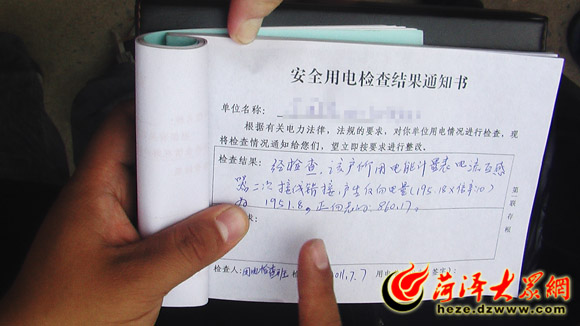 安全用电检查结果通知书
单位名称:
根据有关电力法律,法规的要求,对你单位用电情况进行检查,现
将检查情况通知给您们,望立即按要求进行整改。
检查结果: 经检查,该户所用电能计量表电流互感
器二次接线错接,产生反向电量(195.18×倍率10)
为1951.8。正向表为:860.17。
求:
第
联存根
检查人:用电检查班 检
011.7.7 用电
签字):
菏泽大众网
heze.dzwww.com